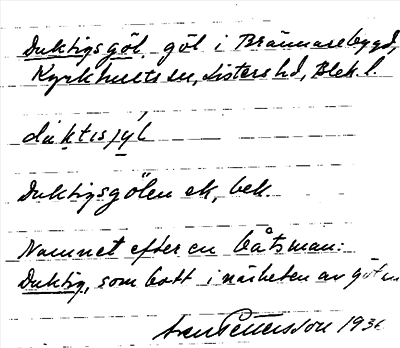 Duktigsgöl, göl i Brännarebygd,
Kyrkhults sn, Listers hd, Blek. l.
duktisjýl
Duktigsgölen ek, bek.
Namnet efter en båtsman:
Duktig, som bott i närheten av göln
Sven Pettersson 1936